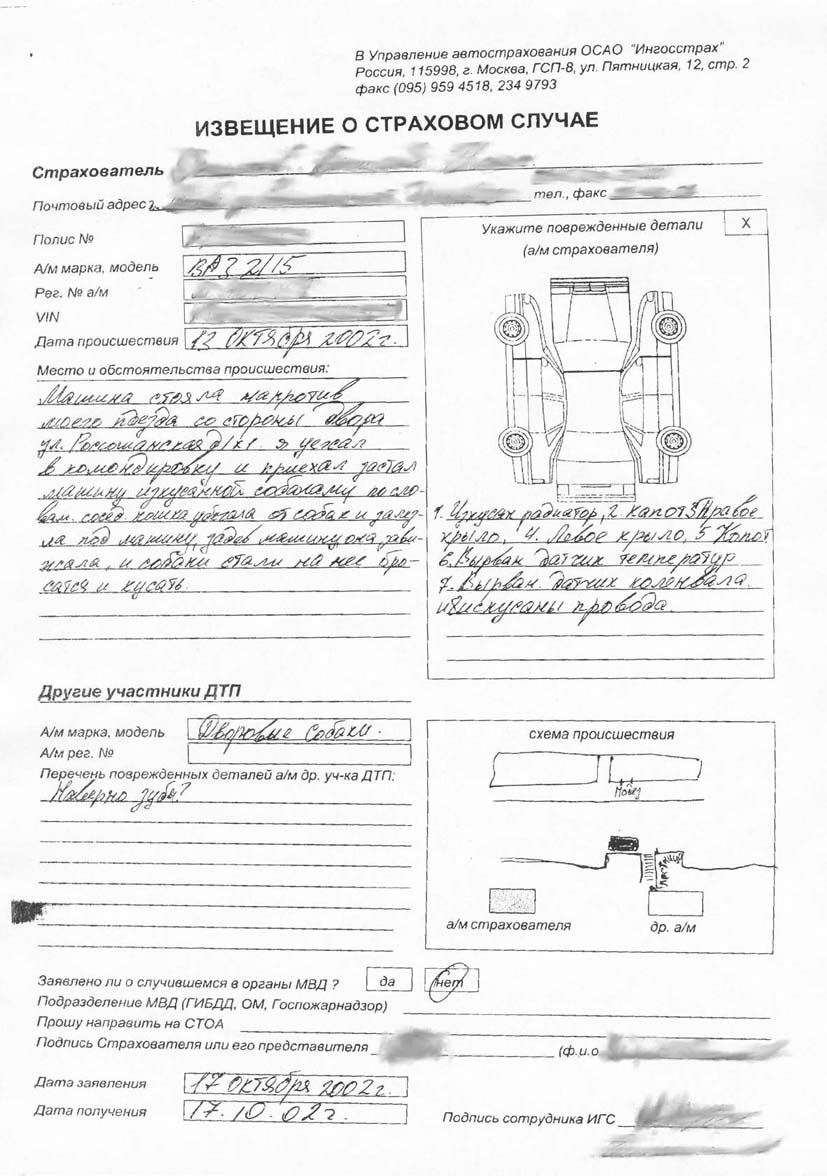 В Управление автострахования ОСАО "Ингосстрах"
Россия, 115998, г. Москва, ГСП-8, ул. Пятницкая, 12, стр. 2
факс (095) 959 4518, 234 9793
ИЗВЕЩЕНИЕ О СТРАХОВОМ СЛУЧАЕ
Страхователь
Почтовый адрес
тел., факс
Полис №
А/м марка, модель ВАЗ 2115
Рег. № а/м
VIN
Дата происшествия 12 октября 2002г.
Место и обстоятельства происшествия:
Машина стояла напротив
моего пдезда со стороны двора
ул. Россошанская д1к1. я уезжал
в комондировку и приехал застал
машину изкусанной собаками по сло-
вам. сосед кошка убегала от собак и залез-
ла под машину, задев машину она зави-
жсала, и собаки стали на нее бро-
сатся и кусать.
Укажите поврежденные детали
(а/м страхователя)
X
1. Изкусан радиатор, 2. капот 3 Правое
крыло, 4. Левое крыло, 5 Копот
6. Вырван датчик температур
7. Вырван. датчик коленвала.
и 8 искусаны провода.
Другие участники ДТП
А/м марка, модель Дворовые собаки.
А/м рег. №
Перечень поврежденных деталей а/м др. уч-ка ДТП:
Наверно зубы?
схема происшествия
а/м страхователя
др. а/м
Заявлено ли о случившемся в органы МВД ? да нет
Подразделение МВД (ГИБДД, ОМ, Госпожарнадзор)
Прошу направить на СТОА
Подпись Страхователя или его представителя (ф.и.о
Дата заявления 17 октября 2002г.
Дата получения 17.10.02г.
Подпись сотрудника ИГС